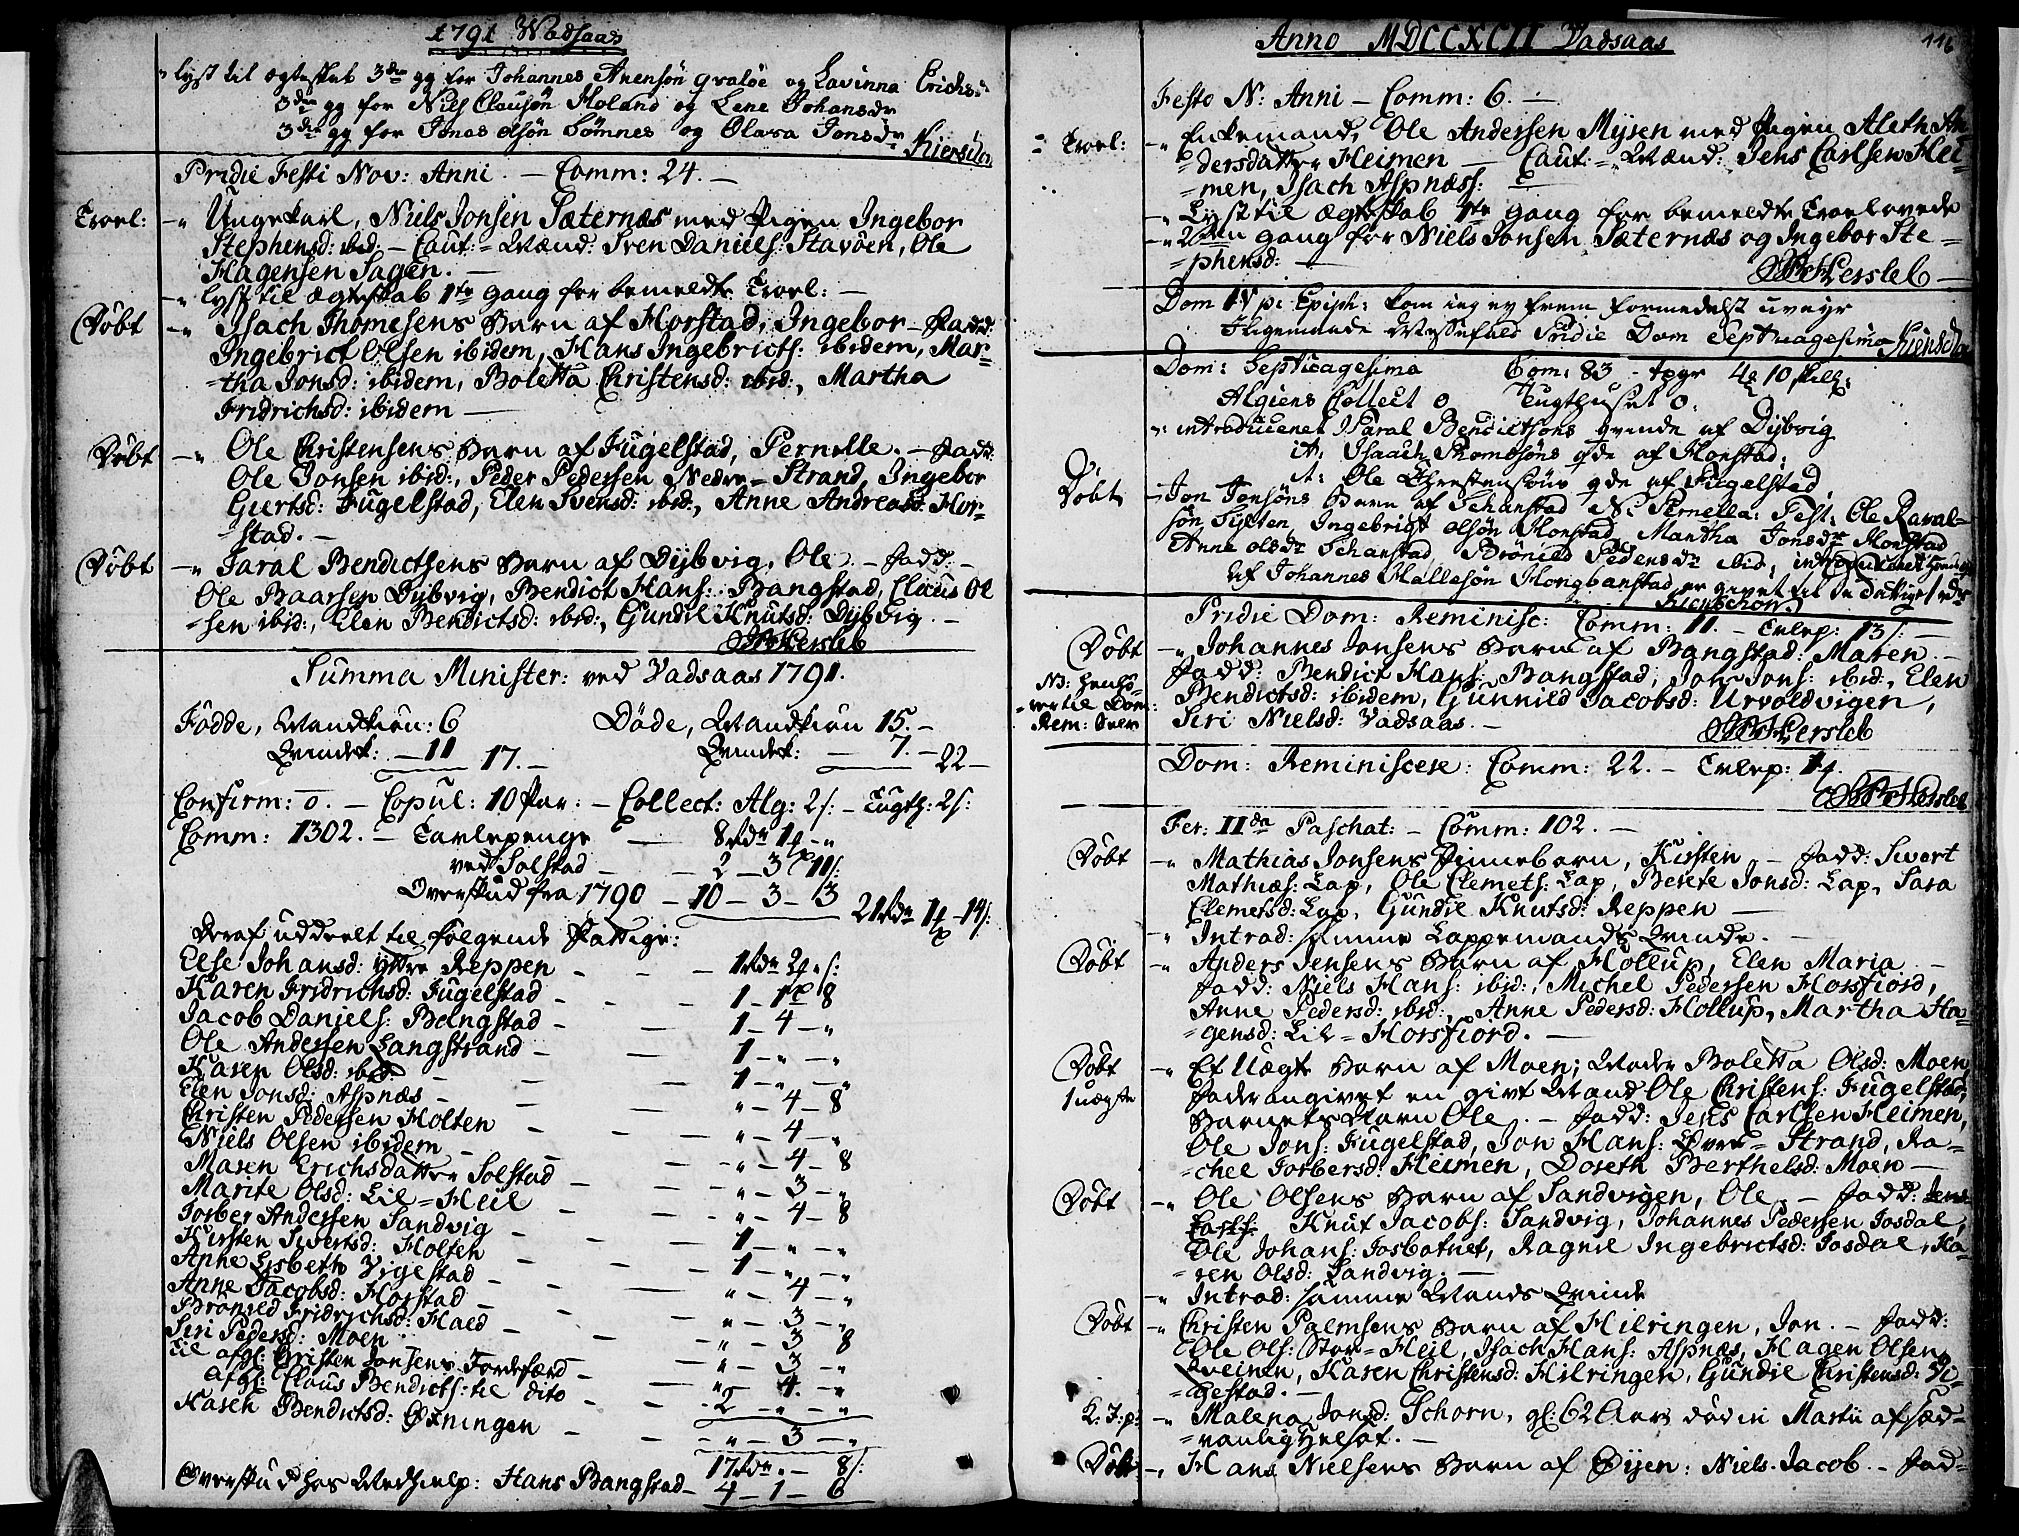 1791 Wadsaas
" lyst til ægteskab 3die gg for Johannes Arensøn Graløe og Lavinna Erichs:
3die gg for Niels Clausøn Holand og Lene Johansdr
3die gg for Jonas Olsøn Sømnes og Olava Jonsdr
Pridie Festi Nov: Anni. — Comm: 24. —
Troel: —" Ungekarl, Niels Jonsen Sæternæs med Pigen Ingebor
Stephensd: ibid: — Caut: = Mænd: Sven Daniels: Stavöen, Ole
Hagensen Sagen. —
—" Lyst til Ægteskab 1te Gang for bemeldte Troel: —
Döbt —" Isach Thomesens Barn af Horstad, Ingebor — Fadd:
Ingebrict Olsen ibidem, Hans Ingebricts: ibidem, Mar-
=tha Jonsd: ibidem, Boletta Christensd: ibid:, Martha
Fridrichsd: ibidem —
Döbt —" Ole Christensens Barn af Fugelstad, Pernelle. — Fadd:
Ole Jonsen ibid:, Peder Pedersen Nedre = Strand, Ingebor
Giertsd: Fugelstad, Elen Svensd: ibid:, Anne Andreasd: Hor-
=stad. —
Döbt —" Faral Bendictsens Barn af Dybvig, Ole. — Fadd: —
Ole Baarsen Dybvig, Bendict Hans: Bangstad, Claus Ol
=sen ibid:, Elen Bendictsd: ibid:, Gundil Knutsd: Dybvig. —
Hersleb
Summa Minister: ved Vadsaas 1791.
Fødde, Mandkiøn: 6 Døde, Mandkiøn 15. —
Qvindek: — 11 17. — Qvindek: — 7. — 22 —
Confirm: 0. — Copul: 10 Par: — Collect: Alg: 2 s: — Tugth: 2 s:
Comm: 1302. — Tavlepenge — 8 rdr 1 — "
ved Solstad — 2 — 3 — 11 s:
Overskud fra 1790 — 10 — 3 — 3 21 rdr 1 — 14 s:
Deraf uddeelt til følgende Fattige:
Else Johansd: Yttre Reppen — 1 rdr 2 " s:
Karen Fridrichsd: Fugelstad — 1 — 1 — 8
Jacob Daniels: Bangstad — 1 — 4 — "
Ole Andersen Langstrand — 1 — " — "
Karen Olsd: ibid: — 1 — " — "
Elen Jonsd: Aspnæs — " — 4 — 8
Christen Pedersen Holten — " — 4 — "
Niels Olsen ibidem — " — 4 — 8
Maren Erichsdatter Solstad — " — 3 — "
Marite Olsd: Lil = Heil — " — 4 — 8
Torber Andersen Sandvig — 1 — " — "
Kirsten Sivertsd: Holten — 1 — " — "
Anne Lisbeth Vigestad — " — 4 — "
Anne Jacobsd: Horstad — " — 3 — "
Brönild Fridrichsd: Hald — " — 3 8
Siri Pedersd: Moen — " — 3 — "
Til afgl: Christen Jonsens Jordefærd — " — 4 — "
afgl: Claus Bendicts: til dito — 2 — " — "
Karen Bendictsd: Øxningen — " — 3 — "
17 rdr " — 8 s:
Overskud hos Medhielp: Hans Bangstad — 4 — 1 — 6
Anno MDCCXCII Vadsaas 116
Festo N: Anni — Comm: 6. —
Troel: —" Enkemand, Ole Andersen Mysen med Pigen Aleth An
=dersdatter Heimen — Caut: = Mænd: Jens Carlsen Hei
=men, Isach Aspnæs: —
—" Lyst til Ægteskab 1te Gang for bemeldte Troelovede
—" 2den Gang for Niels Jonsen Sæternæs og Ingebor Ste=
=phensd: —
Hersleb —
Dom IV p: Epiph: kom ieg ey frem formedelst uveyr
ligemaade Messefald Pridie Dom Septuagesima
Dom: Septuagesima Com: 83 — 10 skill:
Algiers Collect 0 Tugthuset 0.
" introduceret Paral Bendictsøns qvinde af Dybvig
it: Isaach Thomesøns qde af Horstad,
it: Ole Christensøns qde af Fugelstad
Döbt — Jon Jonsøns Barn af Schanstad N: Pernella: Test: Ole Raval-
søn Sylten, Ingebrigt Olsøn Horstad Martha Jonsdr Horstad
Anne Olsdr Schanstad, Brönild Pedersdr ibid, introduceret
af Johannes Hallesøn Hongbanstad er givet til de fattige 1 rdr
Pridie Dom: Reminisc: Comm: 11. — Tavlep: 13 s: —
Döbt —" Johannes Jonsens Barn af Bangstad: Maren. —
Fadd: Bendict Hans: Bangstad, Jon Jons: ibid:, Elen
Bendictsd: ibidem, Gunnild Jacobsd: Urvoldvigen,
Siri Nielsd: Vadsaas. —
Hersleb
Dom: Reminiscere: Comm: 22. — Tavlep: 1
Hersleb
Fer: IIda Paschat: — Comm: 102. —
Döbt —" Mathias Jonsens Finnebarn, Kirsten — Fadd: Sivert
Mathiæs: Lap, Ole Clemets: Lap, Berete Jonsd: Lap, Sara
Clemetsd: Lap, Gundil Knutsd: Reppen —
—" Introd: samme Lappemands Qvinde. —
Döbt —" Anders Jensens Barn af Hollup, Elen Maria —
Fadd: Niels Hans: ibid:, Michel Pedersen Horsfiord,
Anne Pedersd: ibid:, Anne Pedersd: Hollup, Martha Ha-
=gensd: Lil = Horsfiord. —
Döbt
1 uægte —" Et Uægte Barn af Moen; Moder Boletta Olsd: Moen,
Fader angivet en givt Mand Ole Christens: Fugelstad,
Barnets Navn Ole. — Fadd: Jens Carlsen Heimen,
Ole Jons: Fugelstad, Jon Hans: Övre = Strand, Ra-
=chel Torbersd: Heimen, Doreth Berthelsd: Moen —
Döbt —" Ole Olsens Barn af Sandvigen, Ole. — Fadd: Jens
Carls: Knut Jacobs: Sandvig, Johannes Pedersen Josdal,
Ole Johans: Josbotnet, Ragnil Ingebrictsd: Josdal, Ka-
=ren Olsd: Sandvig. —
—" Introd: samme Mands Qvinde
Döbt —" Christen Palmsens Barn af Hilringen, Jon. — Fadd:
Ole Ols: Stor = Heil, Isach Hans: Aspnæs, Hagen Olsen
Qveinen, Karen Christensd: Hilringen, Gundil Christensd: Vi-
=gestad. —
K: J: p: —" Malena Jonsd: Schorn, gl: 62 Aar död in Martii af sæd-
=vanlig Helsot. —
Döbt —" Hans Nielsens Barn af Öyen: Niels Jacob. — Fad=